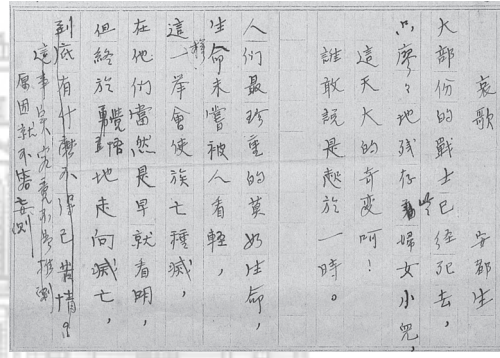 哀歌 安都生
大部份的戰士已經死去,
只廖々地残存些婦女小兒,
這天大的奇變呵!
誰敢説是起於一時。
人们最珍重的莫如生命,
生命未嘗被人看輕,
這一举會使族亡種滅,
在他們當然是早就看明,
但終於覺悟地走向滅亡,
到底有什麼不得已苦情。
這事實究竟
原因就不容妄測